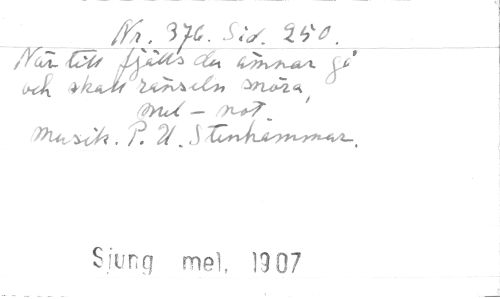 Nr. 376. Sid. 250.
När till fjälls du ämnar gå
och skall ränseln snöra,
mel – not.
Musik. P. U. Stenhammar.
Sjung mel. 1907